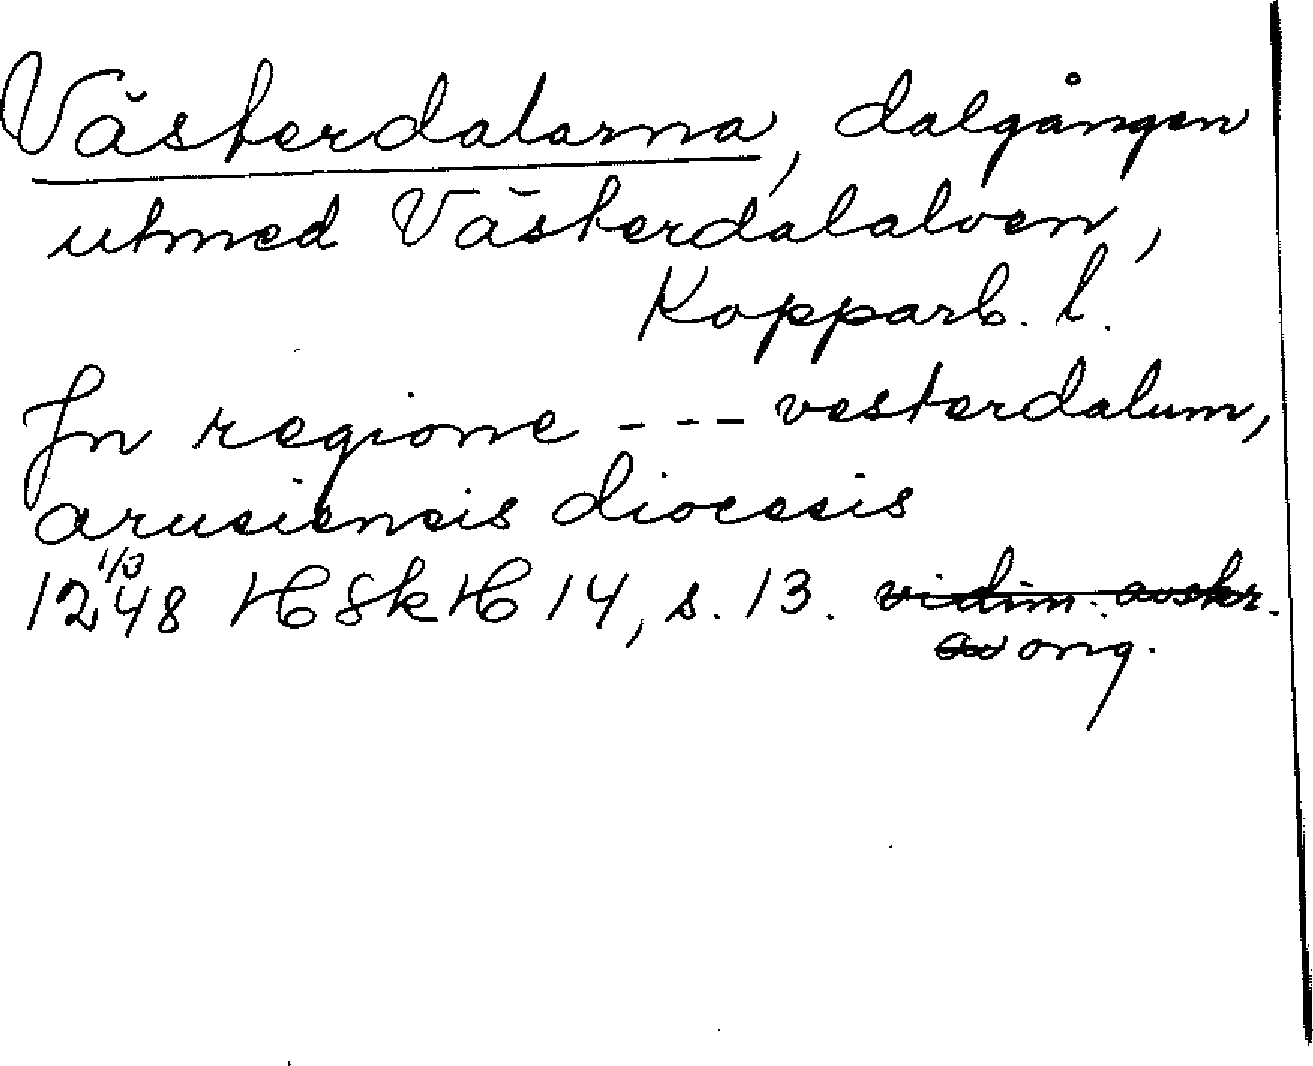 Västerdalarna, dalgången
utmed Västerdalalven,
Kopparb. l.
In regione --- vesterdalum,
arusiensis diocesis
1248 1/3 HSkH 14, s. 13. vidim. avskr.
av orig.